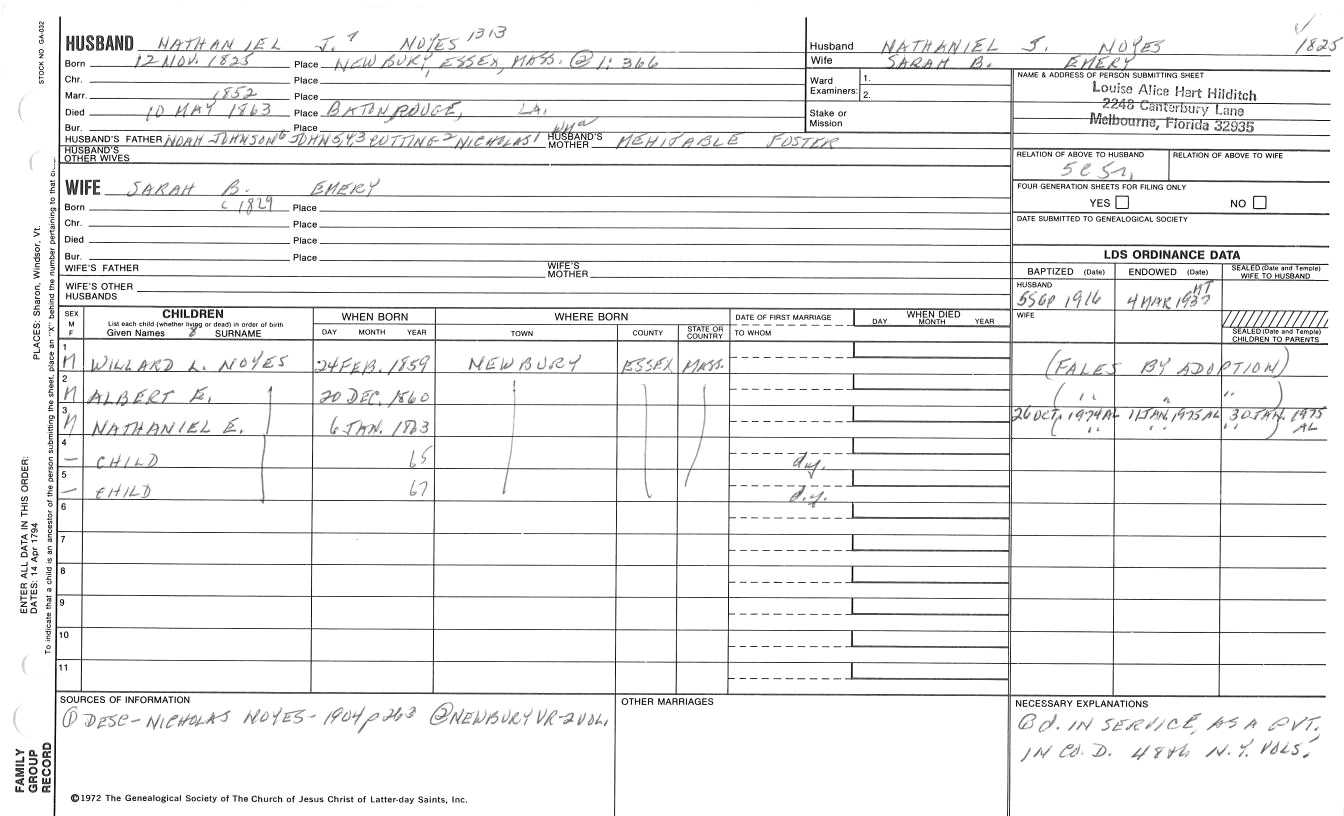 STOCK NO. GA-032
HUSBAND NATHANIEL J. 7 NOYES 1313
Born 12 NOV. 1825 Place NEWBURY, ESSEX, MASS. ② 1:366
Chr. Place
Marr. 1852 Place
Died 10 MAY 1863 Place BATON ROUGE, LA.
Bur. Place
HUSBAND'S FATHER NOAH JOHNSON 6 JOHN 5,4,3 CUTTING 2 NICHOLAS 1 HUSBAND'S MOTHER MEHITABLE FOSTER
HUSBAND'S OTHER WIVES
WIFE SARAH B. EMERY
Born c 1829 Place
Chr. Place
Died Place
Bur. Place
WIFE'S FATHER WIFE'S MOTHER
WIFE'S OTHER HUSBANDS
Husband NATHANIEL J. NOYES 1825
Wife SARAH B. EMERY
Ward Examiners: 1. 2.
Stake or Mission
NAME & ADDRESS OF PERSON SUBMITTING SHEET
Louise Alice Hart Hilditch
2248 Canterbury Lane
Melbourne, Florida 32935
RELATION OF ABOVE TO HUSBAND RELATION OF ABOVE TO WIFE
FOUR GENERATION SHEETS FOR FILING ONLY
YES NO
DATE SUBMITTED TO GENEALOGICAL SOCIETY
LDS ORDINANCE DATA
BAPTIZED (Date) ENDOWED (Date) SEALED (Date and Temple) WIFE TO HUSBAND
HUSBAND
1916 4 MAR 1937
WIFE
SEALED (Date and Temple) CHILDREN TO PARENTS
SEX M F CHILDREN WHEN BORN WHERE BORN DATE OF FIRST MARRIAGE WHEN DIED
List each child (whether living or dead) in order of birth
Given Names 8 SURNAME DAY MONTH YEAR TOWN COUNTY STATE OR COUNTRY TO WHOM DAY MONTH YEAR
1 M WILLARD L. NOYES 24 FEB. 1859 NEWBURY ESSEX MASS. (FALES BY ADOPTION)
2 M ALBERT E. 20 DEC. 1860 ( " " " )
3 M NATHANIEL E. 6 JAN. 1863 26 OCT. 1974 AL 11 JAN. 1975 AL 30 JAN. 1975 AL
( " " " )
4 — CHILD 65 d.y.
5 — CHILD 67 d.y.
6
7
8
9
10
11
SOURCES OF INFORMATION
① DESC-NICHOLAS NOYES-1904 p 263 ② NEWBURY VR-2 VOL.
OTHER MARRIAGES
NECESSARY EXPLANATIONS
IN SERVICE, AS A PVT.
IN CO. D. 48th N.Y. VOLS.
©1972 The Genealogical Society of The Church of Jesus Christ of Latter-day Saints, Inc.
FAMILY GROUP RECORD
ENTER ALL DATA IN THIS ORDER:
DATES: 14 Apr 1794
PLACES: Sharon, Windsor, Vt.
To indicate that a child is an ancestor of the person submitting the sheet, place an "X" behind the number pertaining to that